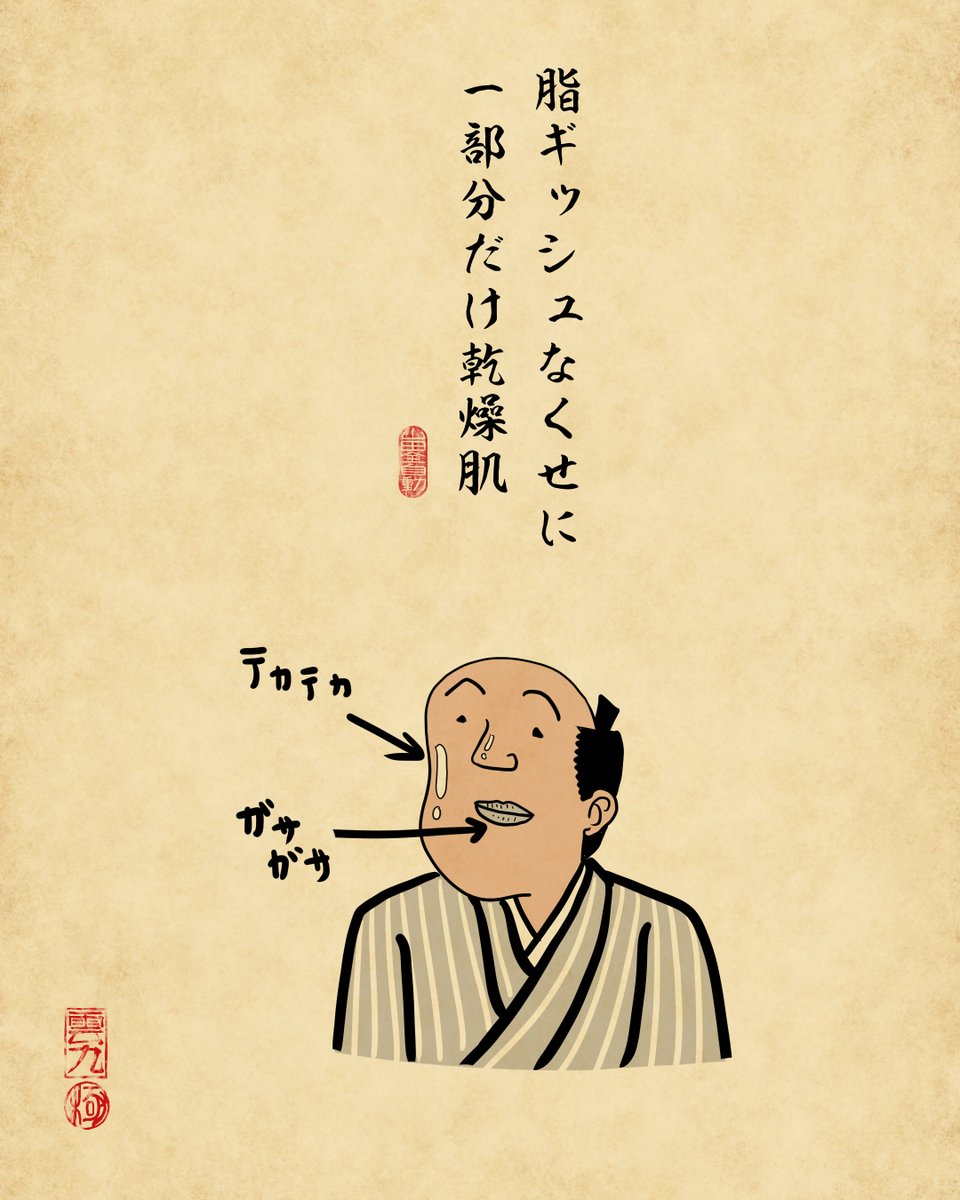 脂ギッシュなくせに
一部分だけ乾燥肌
テカテカ
ガサ
ガサ
雲九
極